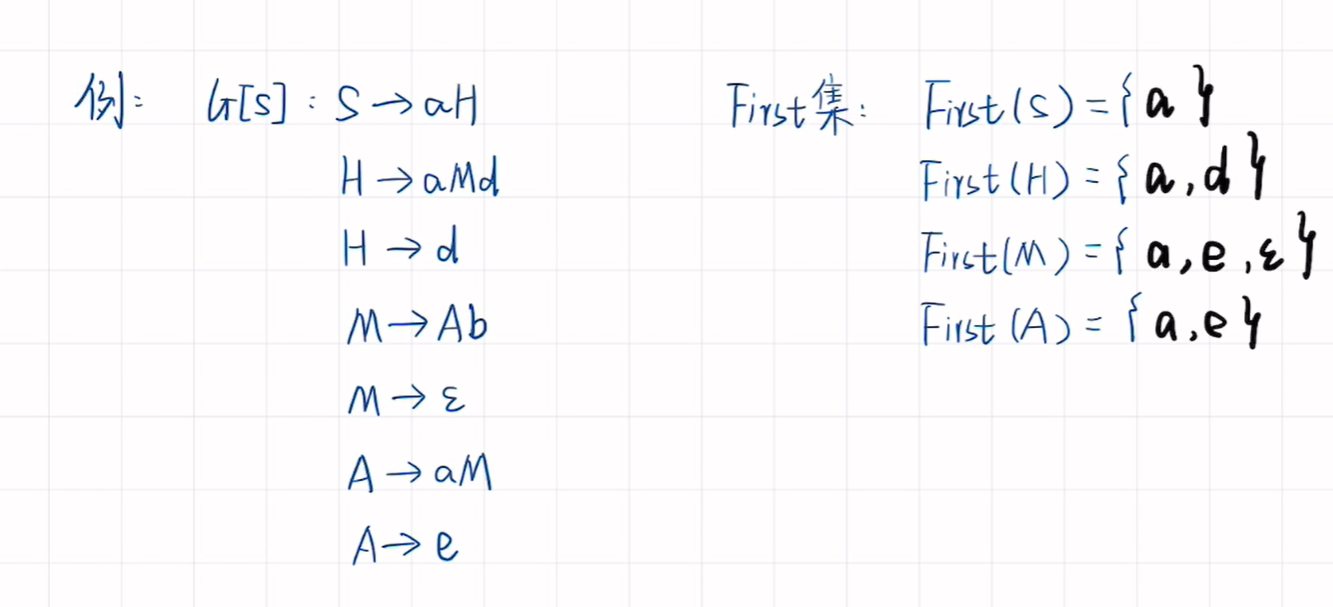 例: G[S]: S→aH
H→aMd
H→d
M→Ab
M→ε
A→aM
A→e
First集: First(S)={a}
First(H)={a,d}
First(M)={a,e,ε}
First(A)={a,e}